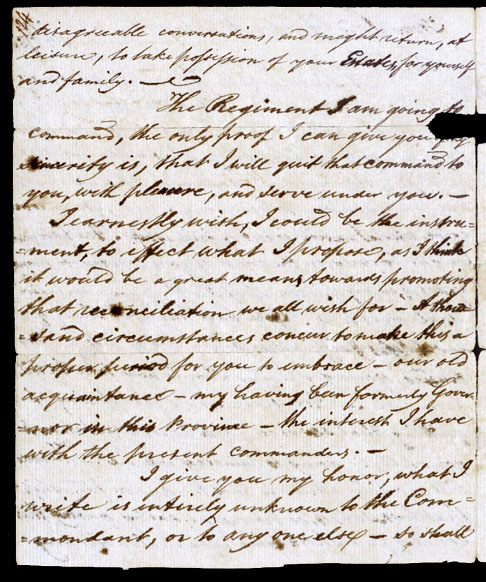 24
disagreeable conversations, and might return, at
leisure, to take possession of your Estates, for yourself
and family. —
The Regiment I am going to
command, the only proof I can give you of my
sincerity is, that I will quit that command to
you, with pleasure, and serve under you. —
I earnestly wish, I could be the instru=
=ment, to effect what I propose, as I think
it would be a great means towards promoting
that reconciliation we all wish for — A thou
=sand circumstances concur to make this a
proper period for you to embrace — our old
acquaintance — my having been formerly Gover
=nor in this Province — the interest I have
with the present commanders. —
I give you my honor, what I
write is intirely unknown to the Com=
=mondant, or to any one else — so shall